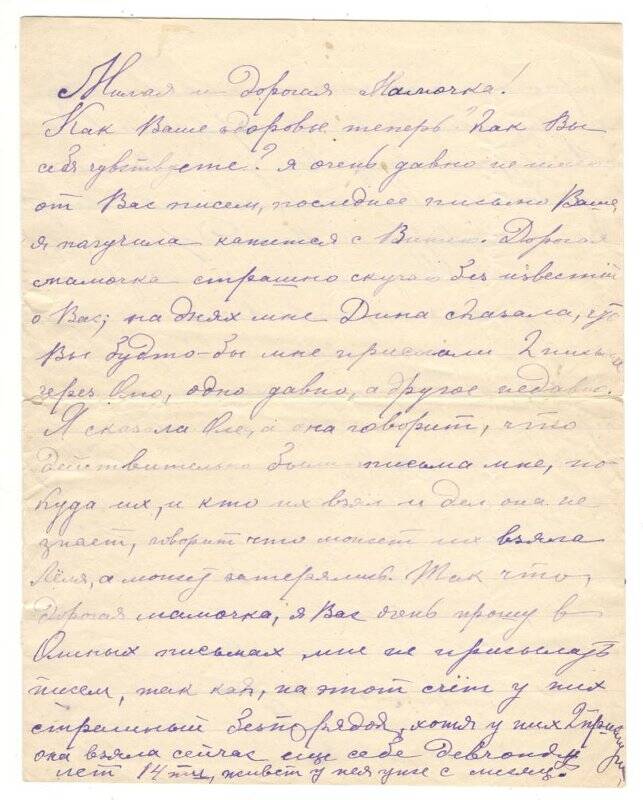 Милая и дорогая Мамочка!
Как Ваше здоровье теперь? Как Вы
себя чувствуете? я очень давно не имею
от Вас писем, последнее письмо Ваше
я получила кажется с Дорогая
мамочка страшно скучаю без известий
о Вас; на днях мне Дина сказала, что
Вы будто-бы мне прислали 2 письма
через Олю, одно давно, а другое недавно.
Я сказала Оле, а она говорит, что
действительно были письма мне, но
куда их, и кто их взял и дел она не
знает, говорит что может их взяла
Лёля, а может затерялись. Так что,
дорогая мамочка, я Вас очень прошу в
Олиных письмах мне не присылать
писем, так как, на этот счёт у них
страшный безпорядок, хотя у них 2
она взяла сейчас еще себе девчонку
лет 14ти, живет у нея уже с месяц.